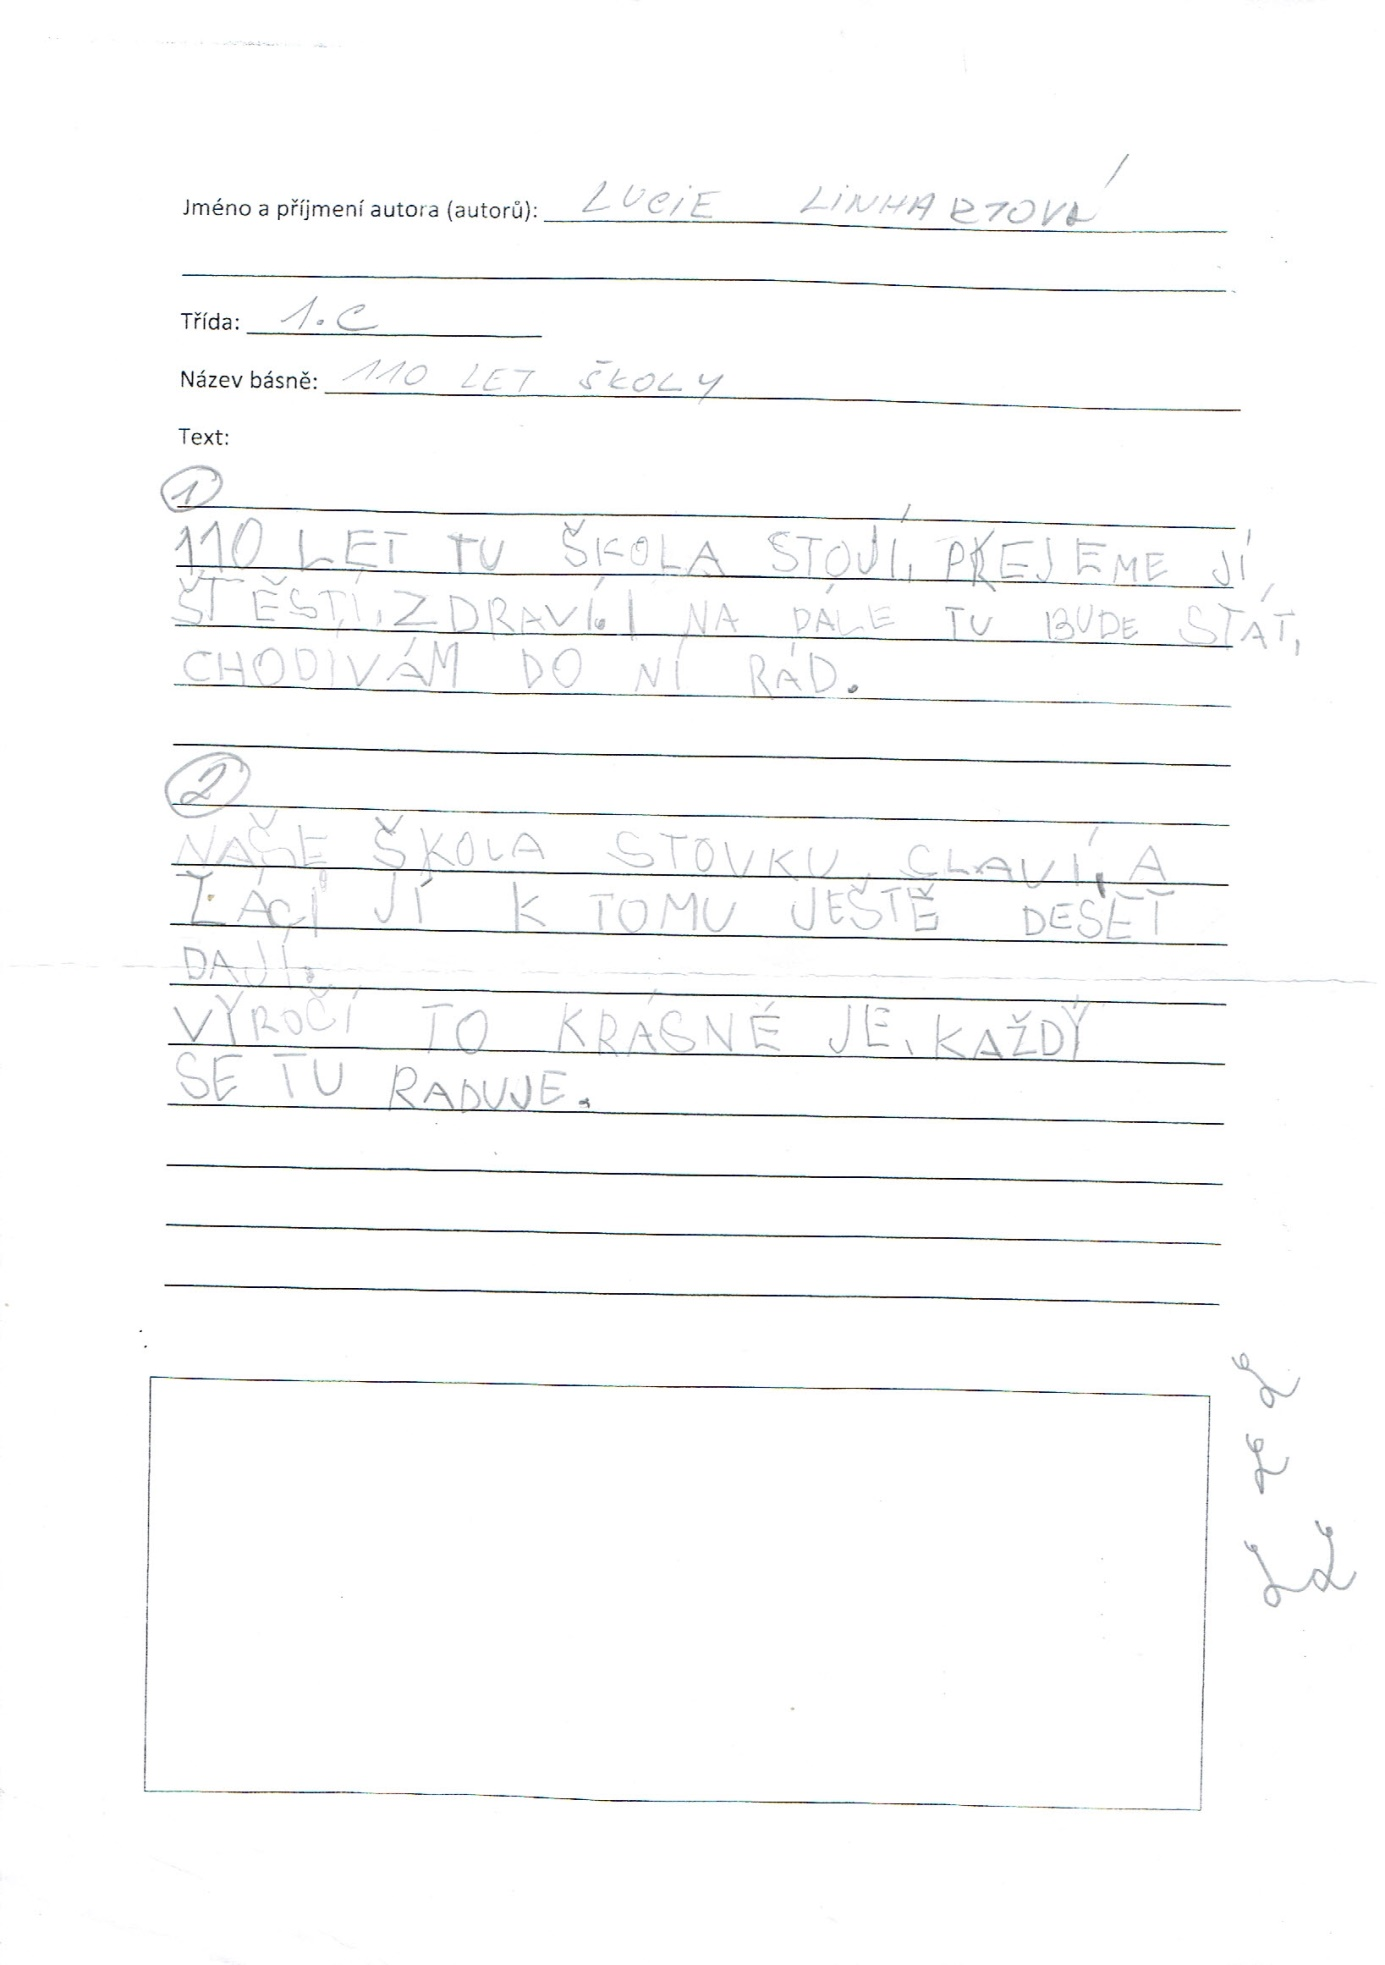 Jméno a příjmení autora (autorů): LUCIE LINHARTOVÁ
Třída: 1.C
Název básně: 110 LET ŠKOLY
Text:
1
110 LET TU ŠKOLA STOJÍ, PŘEJEME JÍ
ŠTĚSTÍ, ZDRAVÍ. I NA DÁLE TU BUDE STÁT,
CHODÍVÁM DO NÍ RÁD.
2
NAŠE ŠKOLA STOVKU SLAVÍ, A
ŽÁCI JÍ K TOMU JEŠTĚ DESET
DAJÍ.
VÝROČÍ TO KRÁSNÉ JE, KAŽDÝ
SE TU RADUJE.